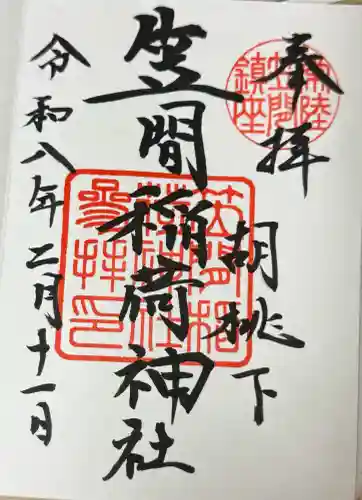 奉拝
胡桃下
笠間稲荷神社
令和八年二月十一日
常陸
笠間
鎮座
笠間稲
荷神社
参拝印